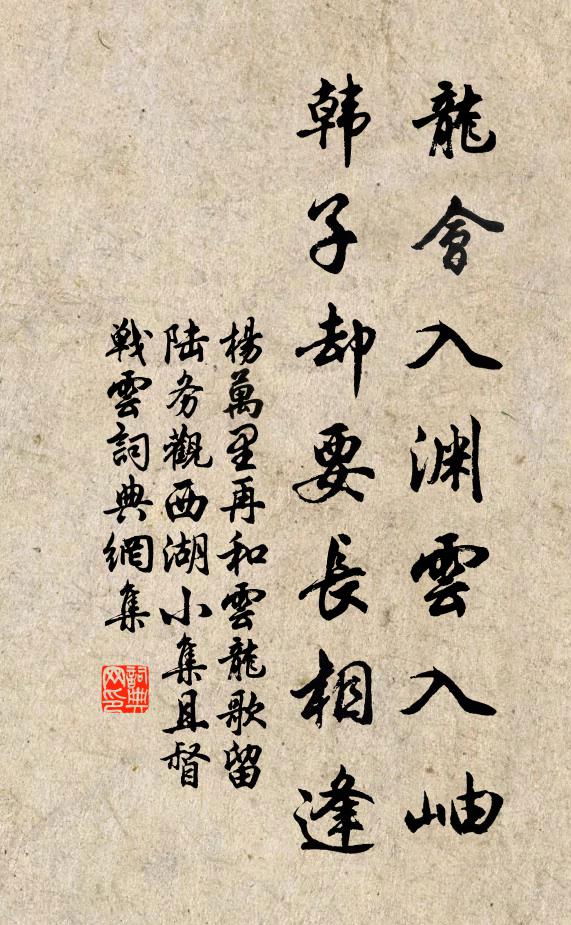 龍會入淵雲入岫
韓子却要長相逢
楊萬里再和雲龍歌留
陆务觀西湖小集且督
戰雲詞典網集
詞典
网印